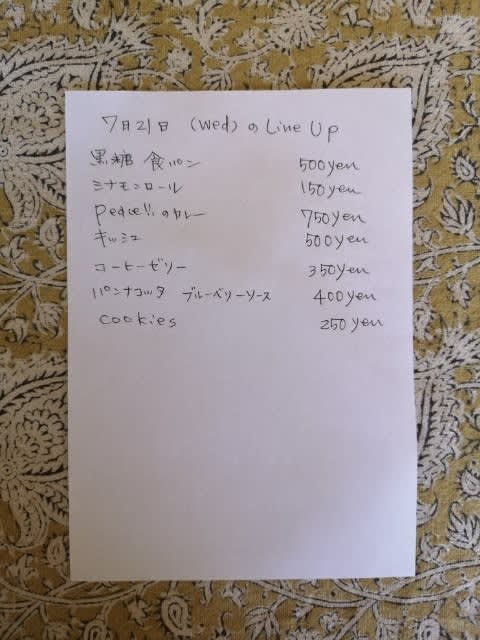 7月21日 (Wed) の Line Up
黒糖 食パン 500yen
シナモンロール 150yen
Peace!! のカレー 750yen
キッシュ 500yen
コーヒーゼリー 350yen
パンナコッタ ブルーベリーソース 400yen
cookies 250yen